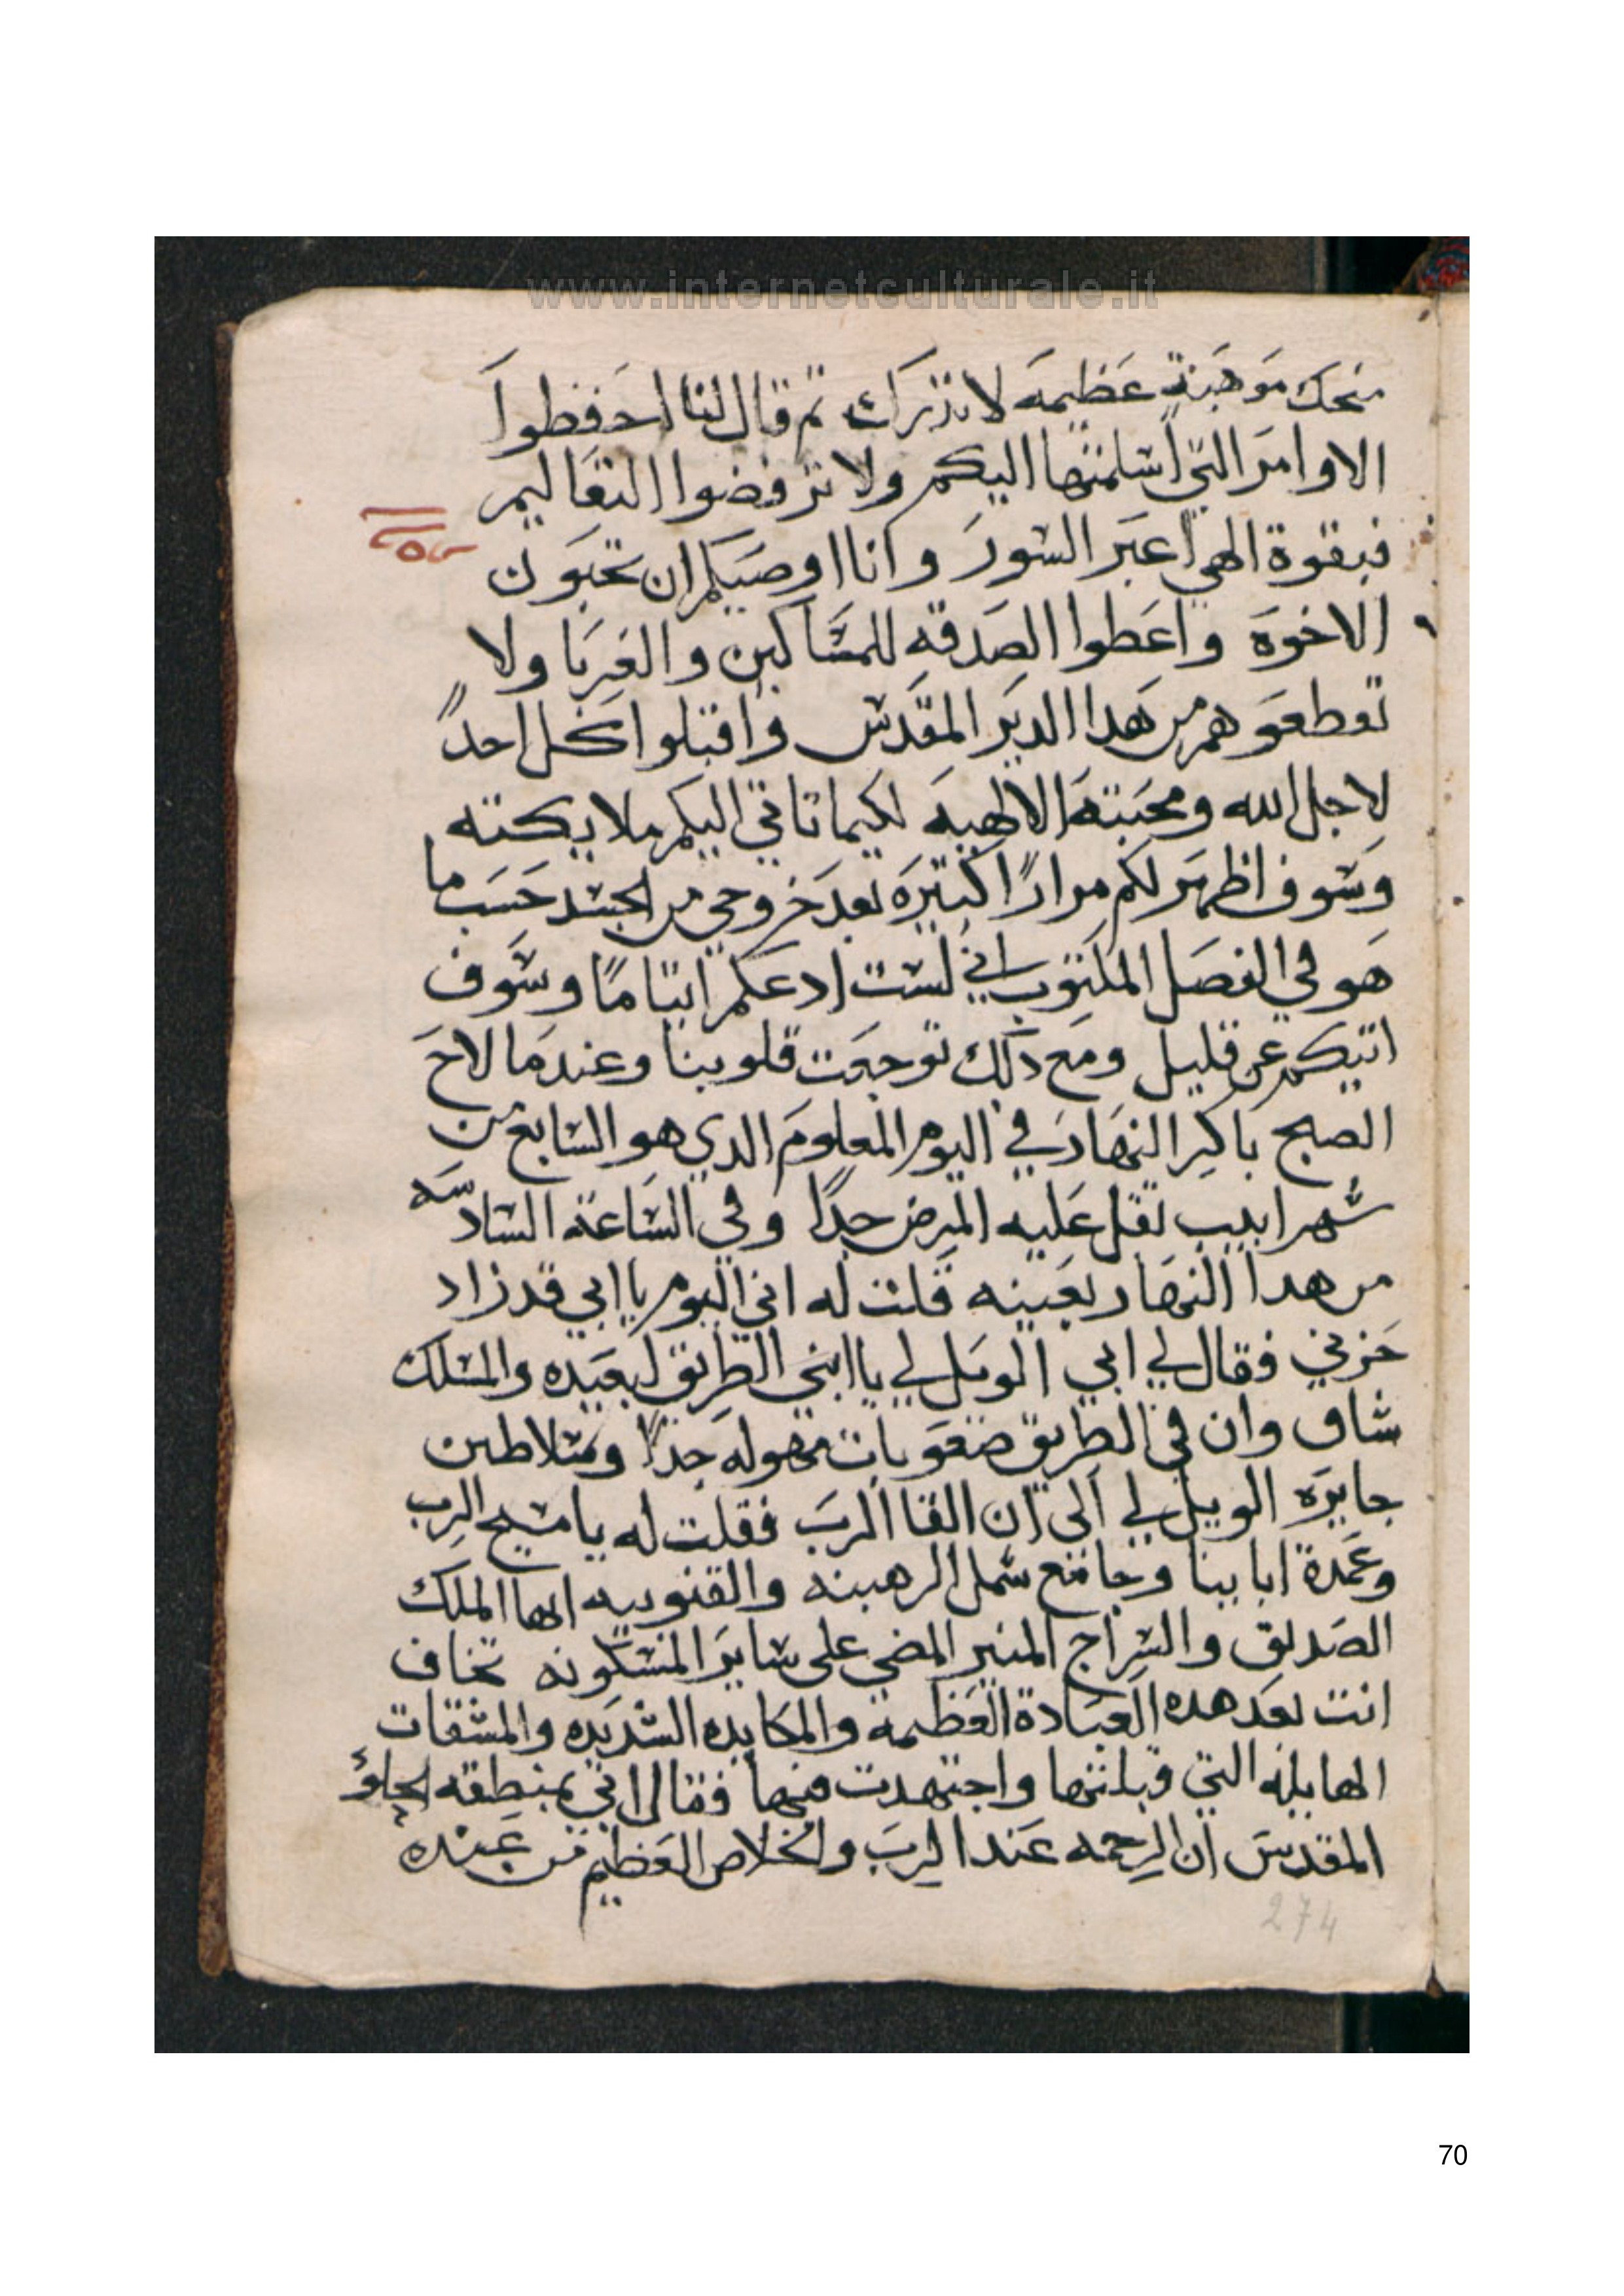 www.internetculturale.it
منحك موهبة عظيمه لا تدرك ثم قال لنا احفظوا
الاوامر التي اسلمتها اليكم ولا ترفضوا التعاليم
فبقوة الهي اعبر السور وانا اوصيكم ان تحبون
الاخوة واعطوا الصدقه للمساكين والغربا ولا
تقطعوهم من هدا الدير المقدس واقبلوا كل احداً
لاجل الله ومحبته الالهيه لكيما تاتي اليكم ملايكته
وسوف اظهر لكم مراراً كتيره بعد خروجي من الجسد حسب ما
هو في الفصل المكتوب اني لست ادعكم ايتاماً وسوف
اتيكم عن قليل ومع دلك توجعت قلوبنا وعندما لاح
الصبح باكر النهار في اليوم المعلوم الدي هو السابع من
شهر ابيب تقل عليه المرض جداً وفي الساعة السادسه
من هدا النهار بعينه قلت له اني اليوم يا ابي قد زاد
حزني فقال لي ابي الويل لي يا ابني الطريق لبعيده والمسلك
شاق وان في الطريق صعوبات مهوله جداً وسلاطين
جايره الويل لي الى ان القا الرب فقلت له يا مسيح الرب
وعمدة ابابينا وجامع شمل الرهبنه والقنوبيه ايها الملك
الصديق والسراج المنير المضي على ساير المسكونه تخاف
انت بعد هده العبادة العظيمة والمكايده الشديده والمشقات
الهايله التي قبلتها واجتهدت فيها فقال اني بمنطقه
المقدس ان الرحمه عند الرب والخلاص العظيم من عنده
274
70